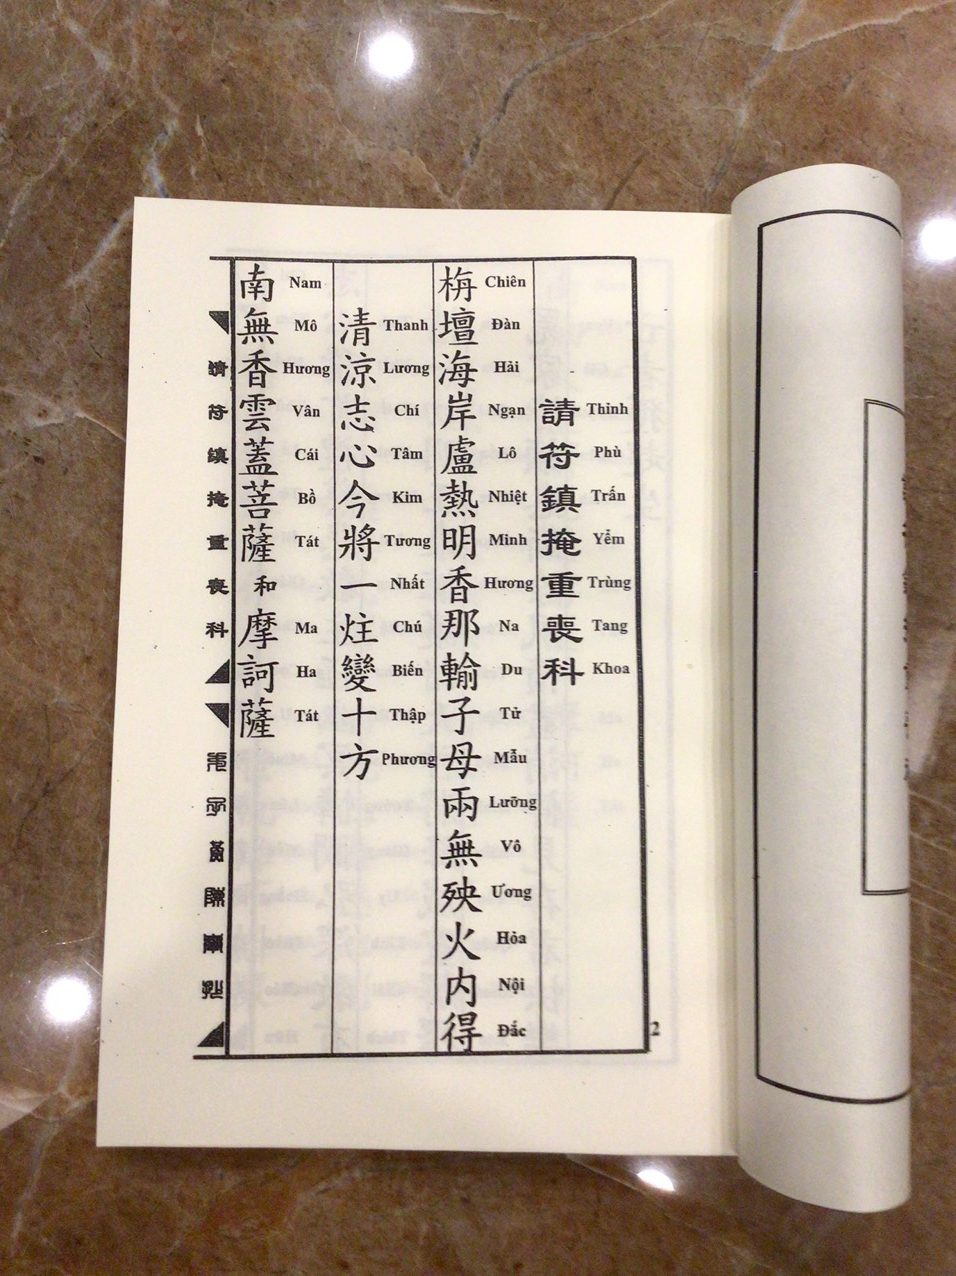 請符鎮掩重喪科
Thỉnh Phù Trấn Yểm Trùng Tang Khoa
栴壇海岸盧熱明香那輸子母兩無殃火内得
Chiên Đàn Hải Ngạn Lô Nhiệt Minh Hương Na Du Tử Mẫu Lưỡng Vô Ương Hỏa Nội Đắc
清涼志心今將一炷變十方
Thanh Lương Chí Tâm Kim Tương Nhất Chú Biến Thập Phương
南無香雲蓋菩薩和摩訶薩
Nam Mô Hương Vân Cái Bồ Tát Ma Ha Tát
請符鎮掩重喪科
2